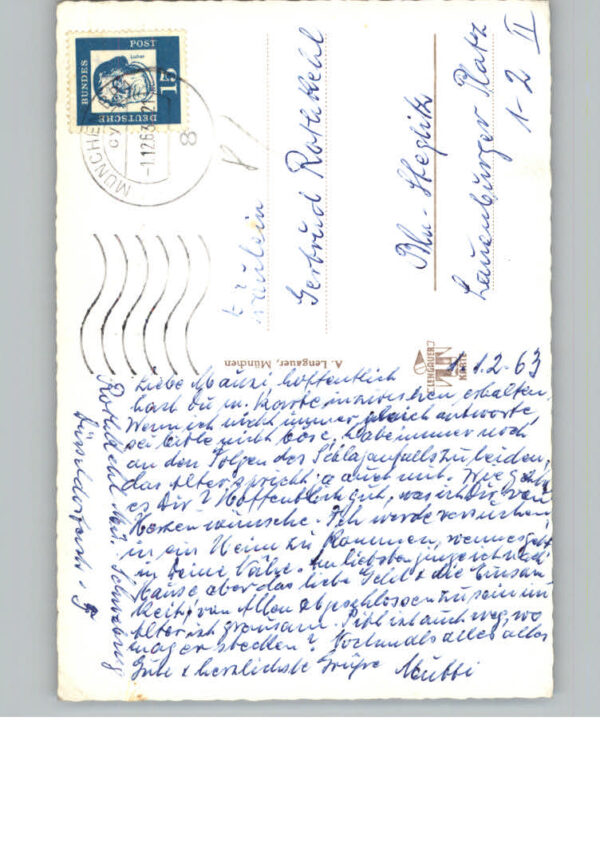 DEUTSCHE
BUNDES
POST
15
Luther
MÜNCHEN
-1.12.63
8
Fräulein
Gertrud Rothkehl
Bln.-Steglitz
Lauenburger Platz
1-2 II
A. Lengauer, München
LENGAUER
KARTE
1.12.63
Liebe Mausi, hoffentlich
hast Du m. Karte inzwischen erhalten.
Wenn ich nicht immer gleich antworte,
sei bitte nicht böse, habe immer noch
an den Folgen des Schlafanfalls zu leiden,
das Alter spricht ja auch mit. Wie geht
es Dir? Hoffentlich gut, was ich Dir von
Herzen wünsche. Ich werde versuchen
in ein Heim zu kommen, wenns geht
in Deine Nähe. Am liebsten ging ich nach
Hause aber das liebe Geld & die Einsam
keit, von Allen abgeschlossen zu sein im
Alter ist grausam. ist auch weg, wo
mag er stecken? Nochmals alles alles
Gute & herzlichste Grüße